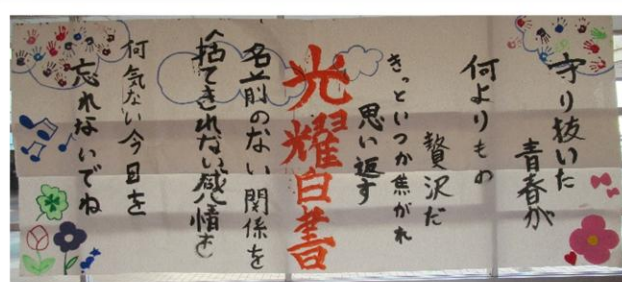 守り抜いた
青春が
何よりもの
贅沢だ
きっといつか焦がれ
思い返す
光耀白書
名前のない関係を
捨てきれない感情も
何気ない今日を
忘れないでね